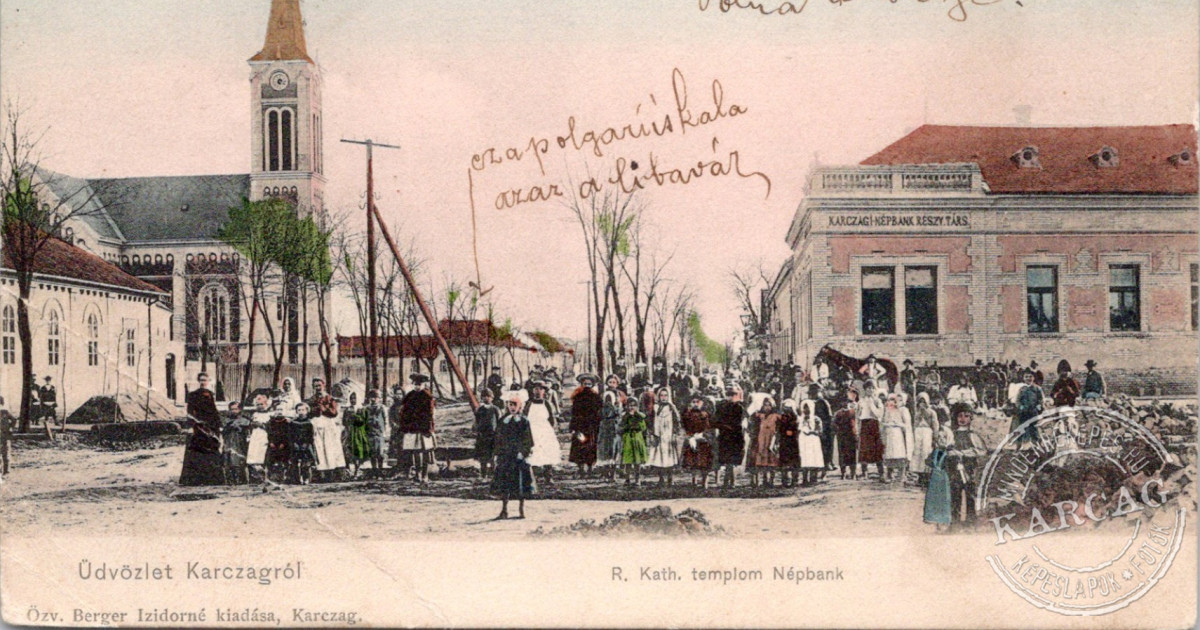 ez a polgari iskola
azaz a libavár
KARCZAGI-NÉPBANK RÉSZV. TÁRS.
Üdvözlet Karczagról
R. Kath. templom Népbank
Özv. Berger Izidorné kiadása, Karczag.
KARCAG
KÉPESLAPOK
FOTÓK